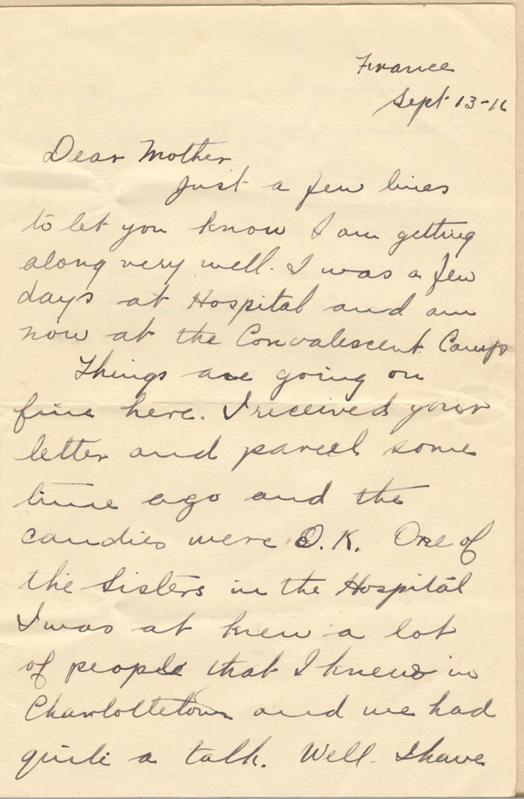 France
Sept 13-16
Dear Mother
Just a few lines
to let you know I am getting
along very well. I was a few
days at Hospital and am
now at the Convalescent Camp
Things are going on
fine here. I received your
letter and parcel some
time ago and the
candies were O.K. One of
the Sisters in the Hospital
I was at knew a lot
of people that I knew in
Charlottetown and we had
quite a talk. Well I have